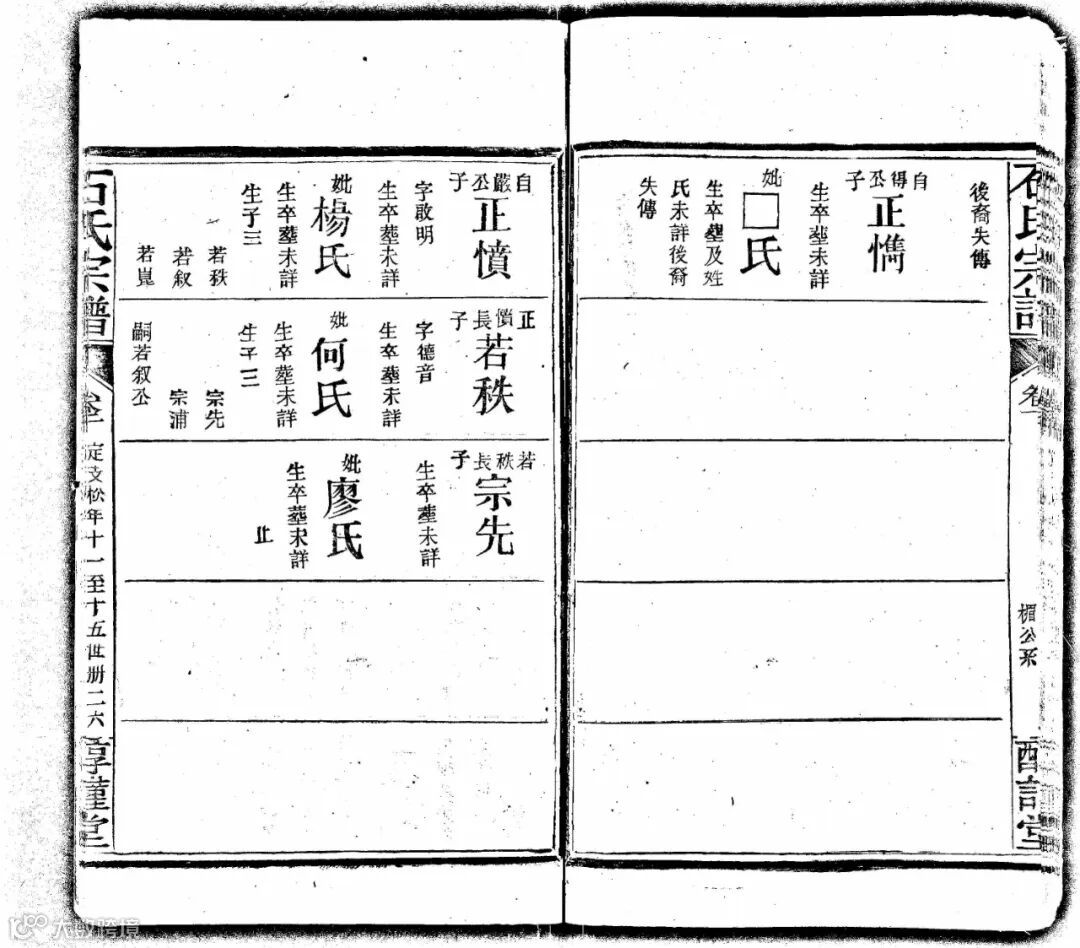 後裔失傳
自得公子
正㦓
生卒塟未詳
妣□氏
生卒塟及姓
氏未詳後裔
失傳
楣公系
自嚴公子
正憤
字啟明
生卒塟未詳
妣楊氏
生卒塟未詳
生子三
若秩
若叙
若崑
正憤長子
若秩
字德音
生卒塟未詳
妣何氏
生卒塟未詳
生子三
宗先
宗浦
嗣若叙公
若秩長子
宗先
生卒塟未詳
妣廖氏
生卒塟未詳
止
石氏宗譜
定支松年十一至十五世册二六
大数跨境